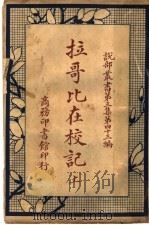 說部叢書第三集第四十三編
拉哥比在校記
商務印書館印行